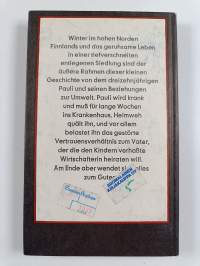 Winter im hohen Norden
Finnlands und das geruhsame Leben
in einer tiefverschneiten
entlegenen Siedlung sind der
äußere Rahmen dieser kleinen
Geschichte von dem dreizehnjährigen
Pauli und seinen Beziehungen
zur Umwelt. Pauli wird krank
und muß für lange Wochen
ins Krankenhaus. Heimweh
quält ihn, und vor allem
belastet ihn das gestörte
Vertrauensverhältnis zum Vater,
der die den Kindern verhaßte
Wirtschafterin heiraten will.
Am Ende aber wendet sich alles
zum Guten.